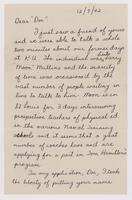 12/3/42
Dear "Doc"
I just saw a friend of yours
and we were able to talk a whole
two minutes about our former days
at K.U. The individual was, "Larry
Moon" Mullins and the scarcity
of time was occasioned by the
vast number of people waiting in
line to talk to him. Moon is in
St Louis for 3 days interviewing
prospective teachers of physical ed.
in the various Naval Training
schools and it seems that a great
number of coaches here will are
applying for a post in Tom Hamilton's
program.
In my application, Doc, I took
the liberty of putting your name